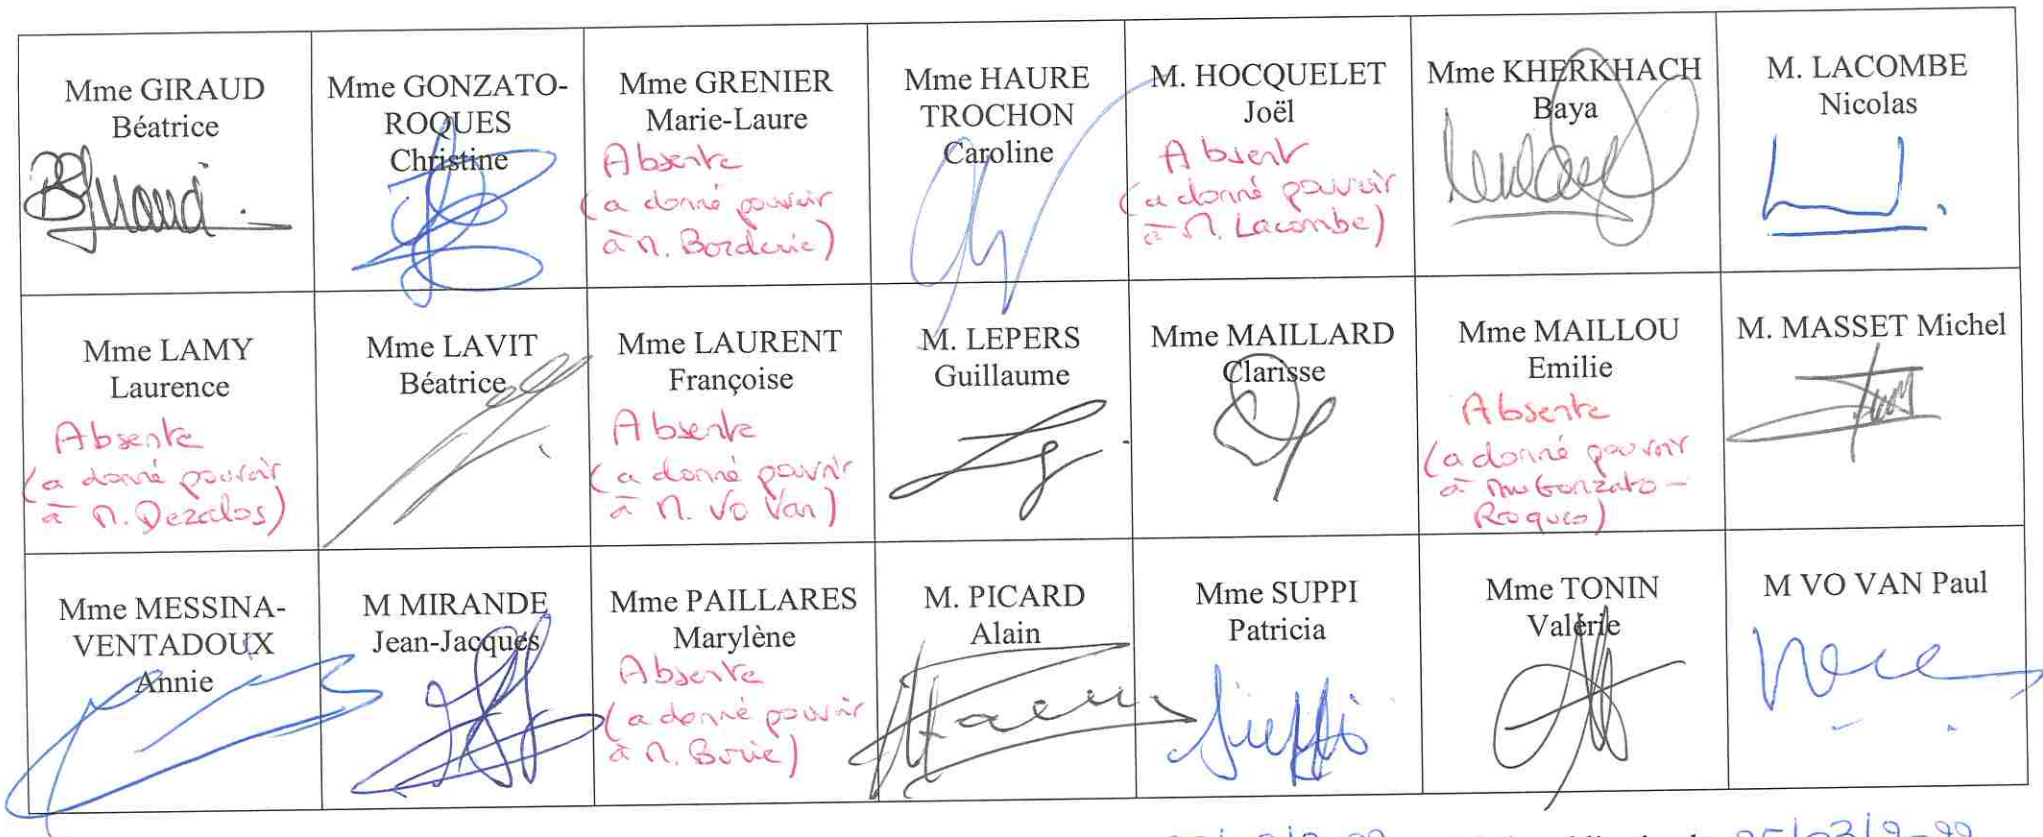 Mme GIRAUD
Béatrice
Mme GONZATO-
ROQUES
Christine
Mme GRENIER
Marie-Laure
Absente
(a donné pouvoir
à M. Borderie)
Mme HAURE
TROCHON
Caroline
M. HOCQUELET
Joël
Absent
(a donné pouvoir
à M. Lacombe)
Mme KHERKHACH
Baya
M. LACOMBE
Nicolas
Mme LAMY
Laurence
Absente
(a donné pouvoir
à M. Dezalos)
Mme LAVIT
Béatrice
Mme LAURENT
Françoise
Absente
(a donné pouvoir
à M. Vo Van)
M. LEPERS
Guillaume
Mme MAILLARD
Clarisse
Mme MAILLOU
Emilie
Absente
(a donné pouvoir
à Mme Gonzato-
Roques)
M. MASSET Michel
Mme MESSINA-
VENTADOUX
Annie
M MIRANDE
Jean-Jacques
Mme PAILLARES
Marylène
Absente
(a donné pouvoir
à M. Borie)
M. PICARD
Alain
Mme SUPPI
Patricia
Mme TONIN
Valérie
M VO VAN Paul